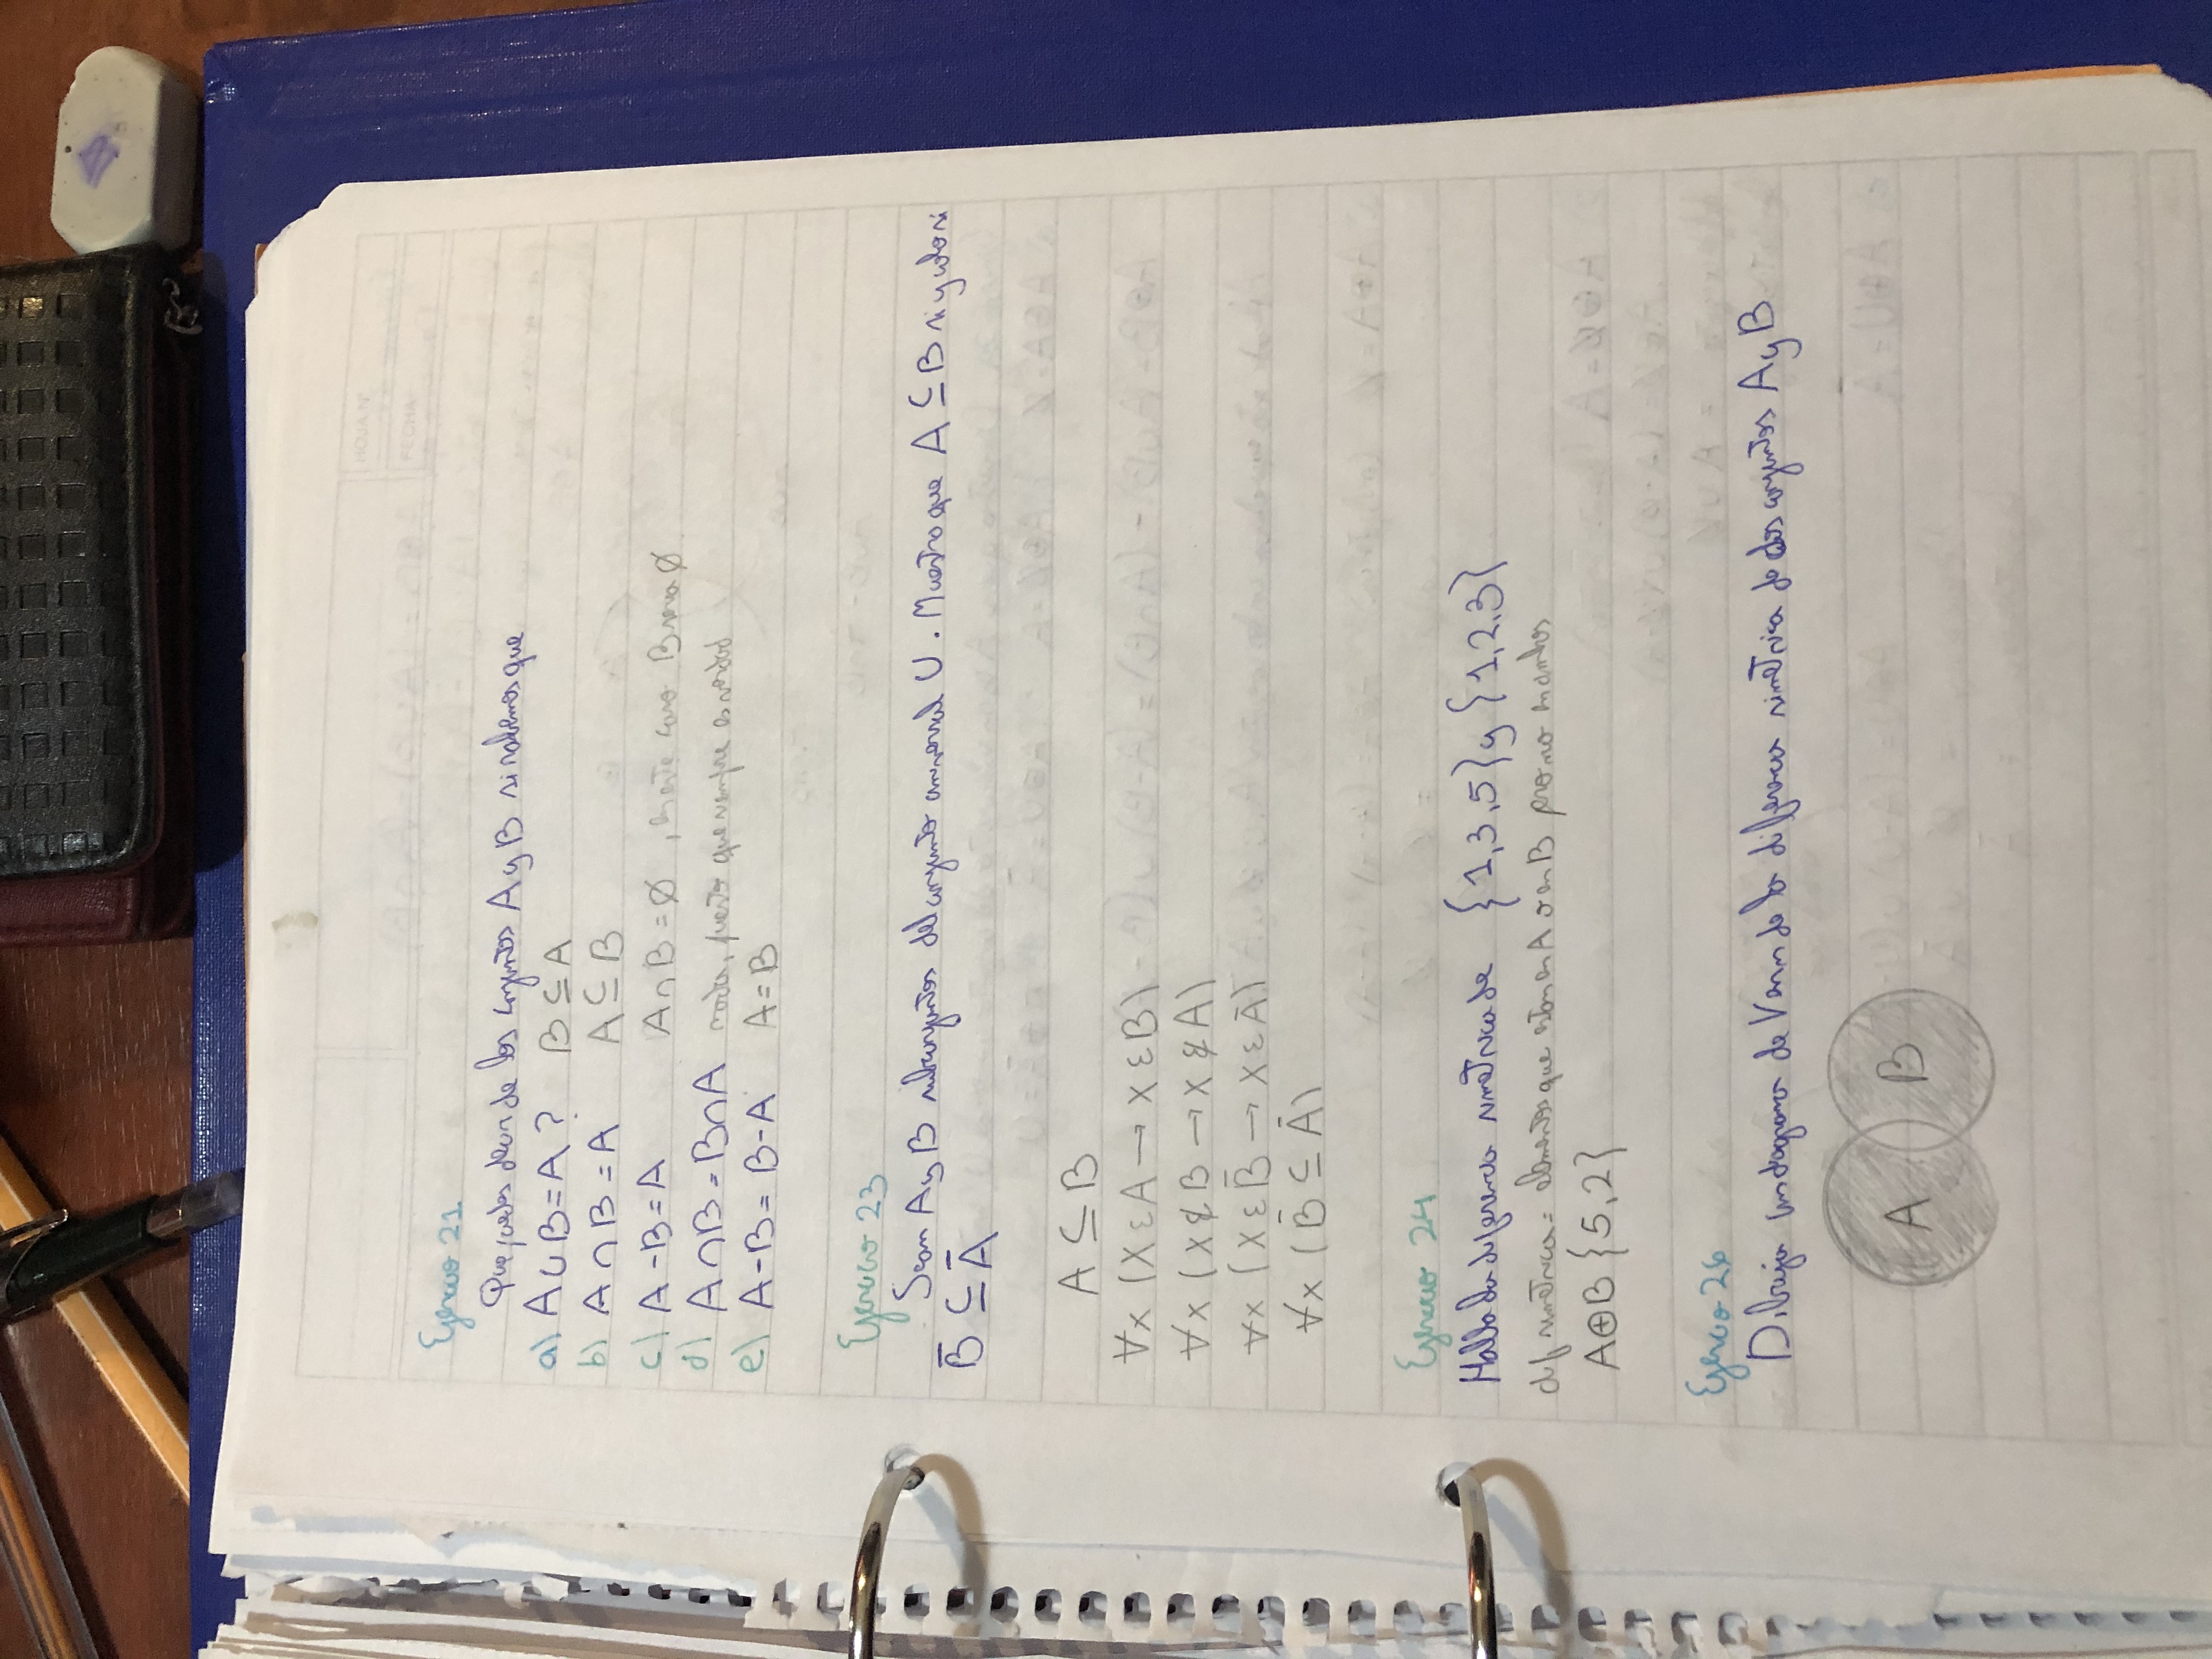 HOJA N°
FECHA
Ejercicio 21
Que puedes decir de los conjuntos A y B si sabemos que
a) A∪B=A ? B ⊆ A
b) A ∩ B = A A ⊆ B
c) A -B = A A ∩ B = Ø , en este caso B sería Ø
d) A∩B = B∩A nada, puesto que siempre es verdad
e) A-B = B-A A = B
Ejercicio 23
Sean A y B subconjuntos del conjunto universal U . Muestra que A ⊆ B si y solo si
B̄ ⊆ Ā
A ⊆ B
∀x (x ε A → x ε B)
∀x (x ∉ B → x ∉ A)
∀x (x ε B̄ → x ε Ā)
∀x ( B̄ ⊆ Ā )
Ejercicio 24
Halla la diferencia simetrica de {1,3,5} y {1,2,3}
dif simetrica = elementos que estan en A o en B pero no en ambos
A⊕B {5,2}
Ejercicio 26
Dibuja un diagrama de Venn de la diferencia simetrica de dos conjuntos A y B
A B